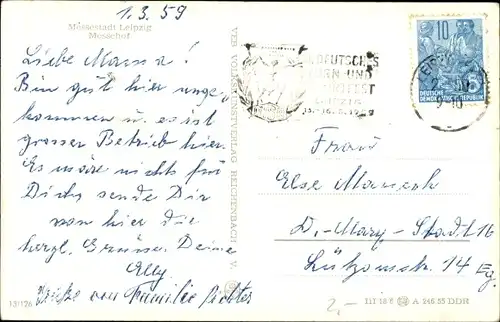 1.3.59
Messestadt Leipzig
Messehof
Liebe Mama!
Bin gut hier ange-
kommen u. es ist
grosser Betrieb hier.
Es wäre nichts für
Dich, sende Dir
von hier die
herzl. Grüsse Deine
Elly
Grüße von Familie Richter
13/126
VEB VOLKSKUNSTVERLAG REICHENBACH I. V.
DEUTSCHES
TURN- UND
SPORTFEST
LEIPZIG
10
5
DEUTSCHE
DEMOKRATISCHE REPUBLIK
LEIPZIG
Frau
Else
D.-Mary-Stadt 16
14 Eg.
2,-
III 18 8 A 246 55 DDR